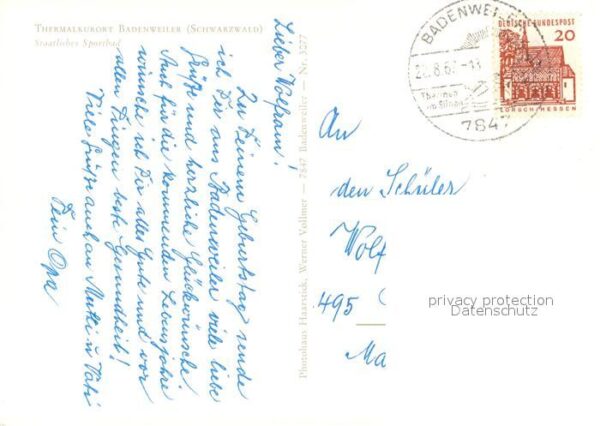 THERMALKURORT BADENWEILER (SCHWARZWALD)
Staatliches Sportbad
Lieber Wolfram!
Zu Deinem Geburtstag sende
ich Dir aus Badenweiler viele liebe
Grüße und herzliche Glückwünsche.
Auch für die kommenden Lebensjahre
wünsche ich Dir alles Gute und vor
allen Dingen beste Gesundheit!
Viele Grüße auch an Mutti u. Vati
Dein Opa
Photohaus Haarstick, Werner Vollmer — 7847 Badenweiler — Nr. 3277
BADENWEILER
7847
DEUTSCHE BUNDESPOST
20
LORSCH/HESSEN
An
den Schüler
Wolf
495
Ma
privacy protection
Datenschutz